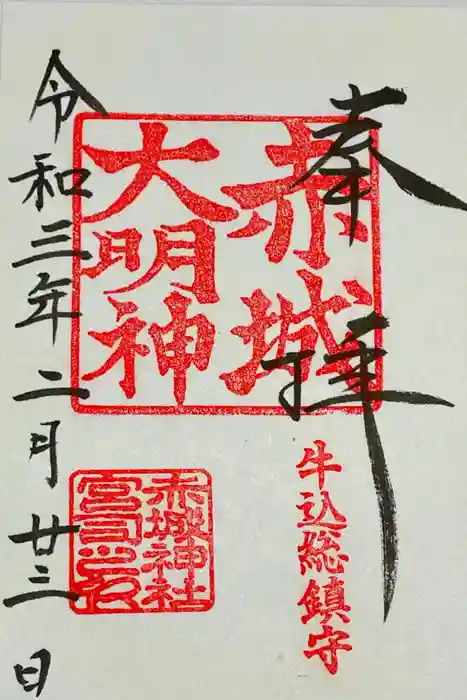 奉拝
牛込総鎮守
赤城
大明神
赤城神社
宮司之印
令和三年二月廿三日